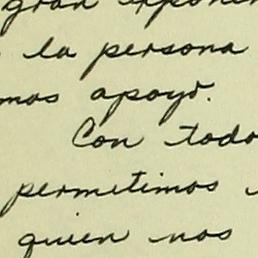 gran
la persona
mos apoyo.
Con todo
permitimos
quien nos